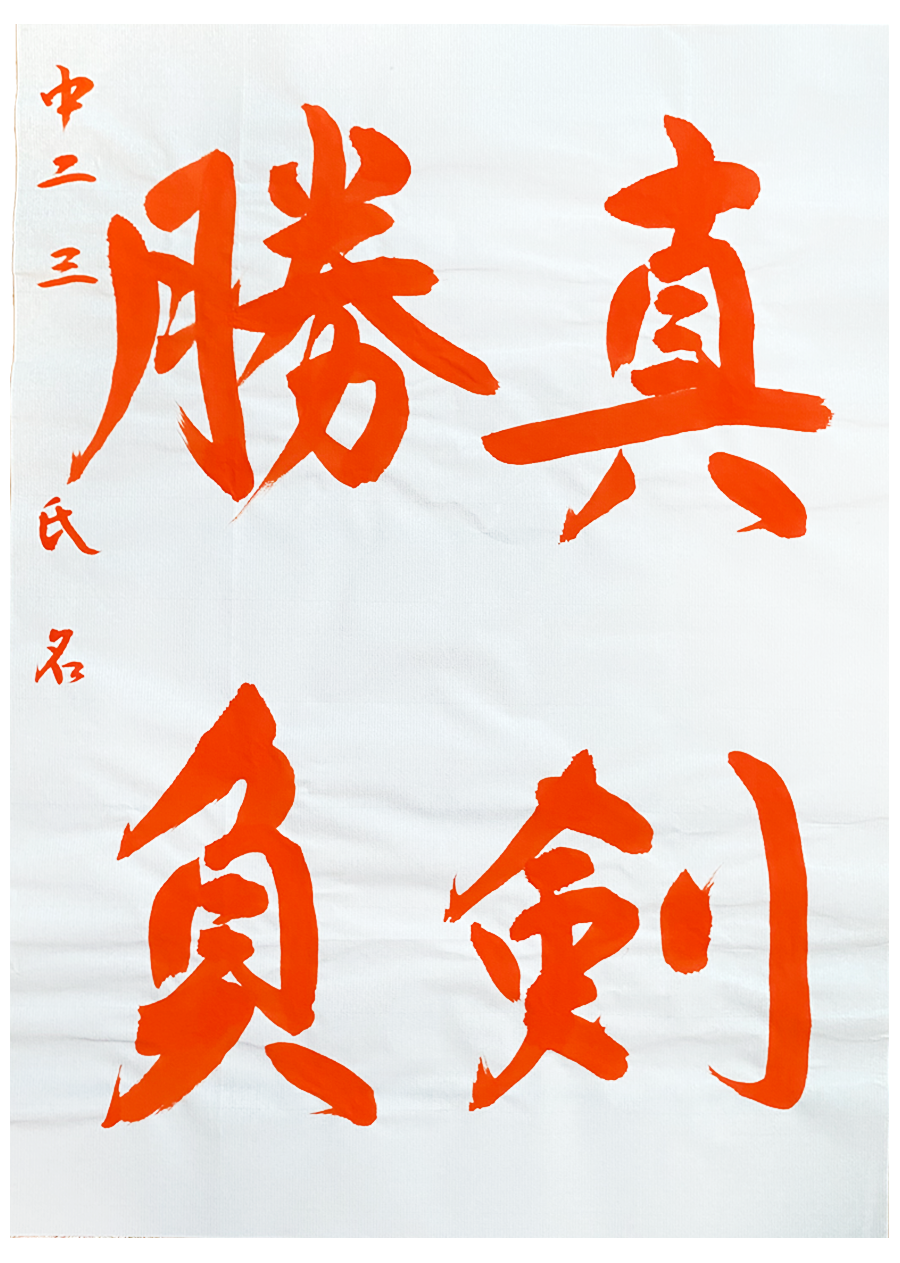 真剣
勝負
中二三 氏名